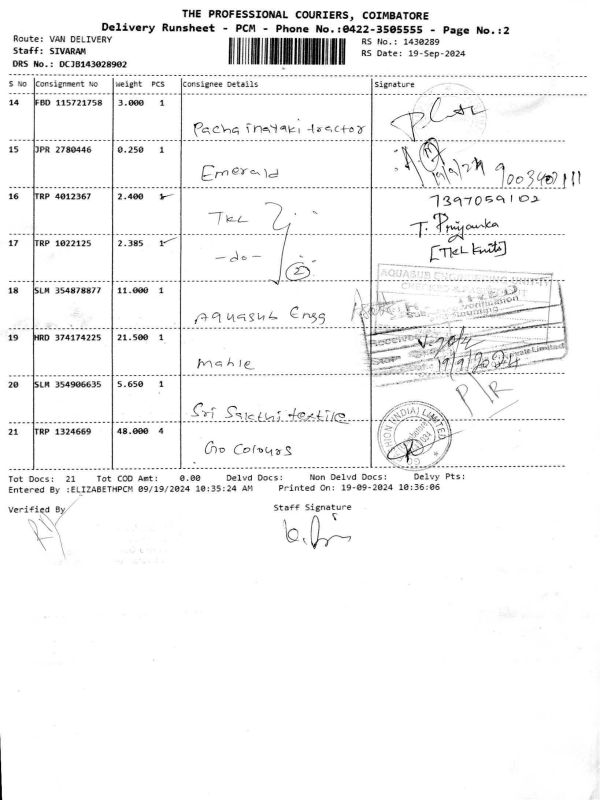 THE PROFESSIONAL COURIERS, COIMBATORE
Delivery Runsheet - PCM - Phone No.:0422-3505555 - Page No.:2
Route: VAN DELIVERY
RS No.: 1430289
Staff: SIVARAM
RS Date: 19-Sep-2024
DRS No.: DCJB143028902
S No Consignment No Weight PCS Consignee Details Signature
14 FBD 115721758 3.000 1
Pachainayaki tractor
15 JPR 2780446 0.250 1
Emerald
19/9/24 9003401111
16 TRP 4012367 2.400 1
TKL
7397059102
T. Priyanka
[TKL Knits]
17 TRP 1022125 2.385 1
-do-
2
18 SLM 354878877 11.000 1
Aquasub Engg
AQUASUB ENGINEERING UNIT-IV
19 HRD 374174225 21.500 1
Mahle
19/9/2024
20 SLM 354906635 5.650 1
Sri Sakthi textile
21 TRP 1324669 48.000 4
Go Colours
Tot Docs: 21 Tot COD Amt: 0.00 Delvd Docs: Non Delvd Docs: Delvy Pts:
Entered By :ELIZABETHPCM 09/19/2024 10:35:24 AM Printed On: 19-09-2024 10:36:06
Verified By
Staff Signature